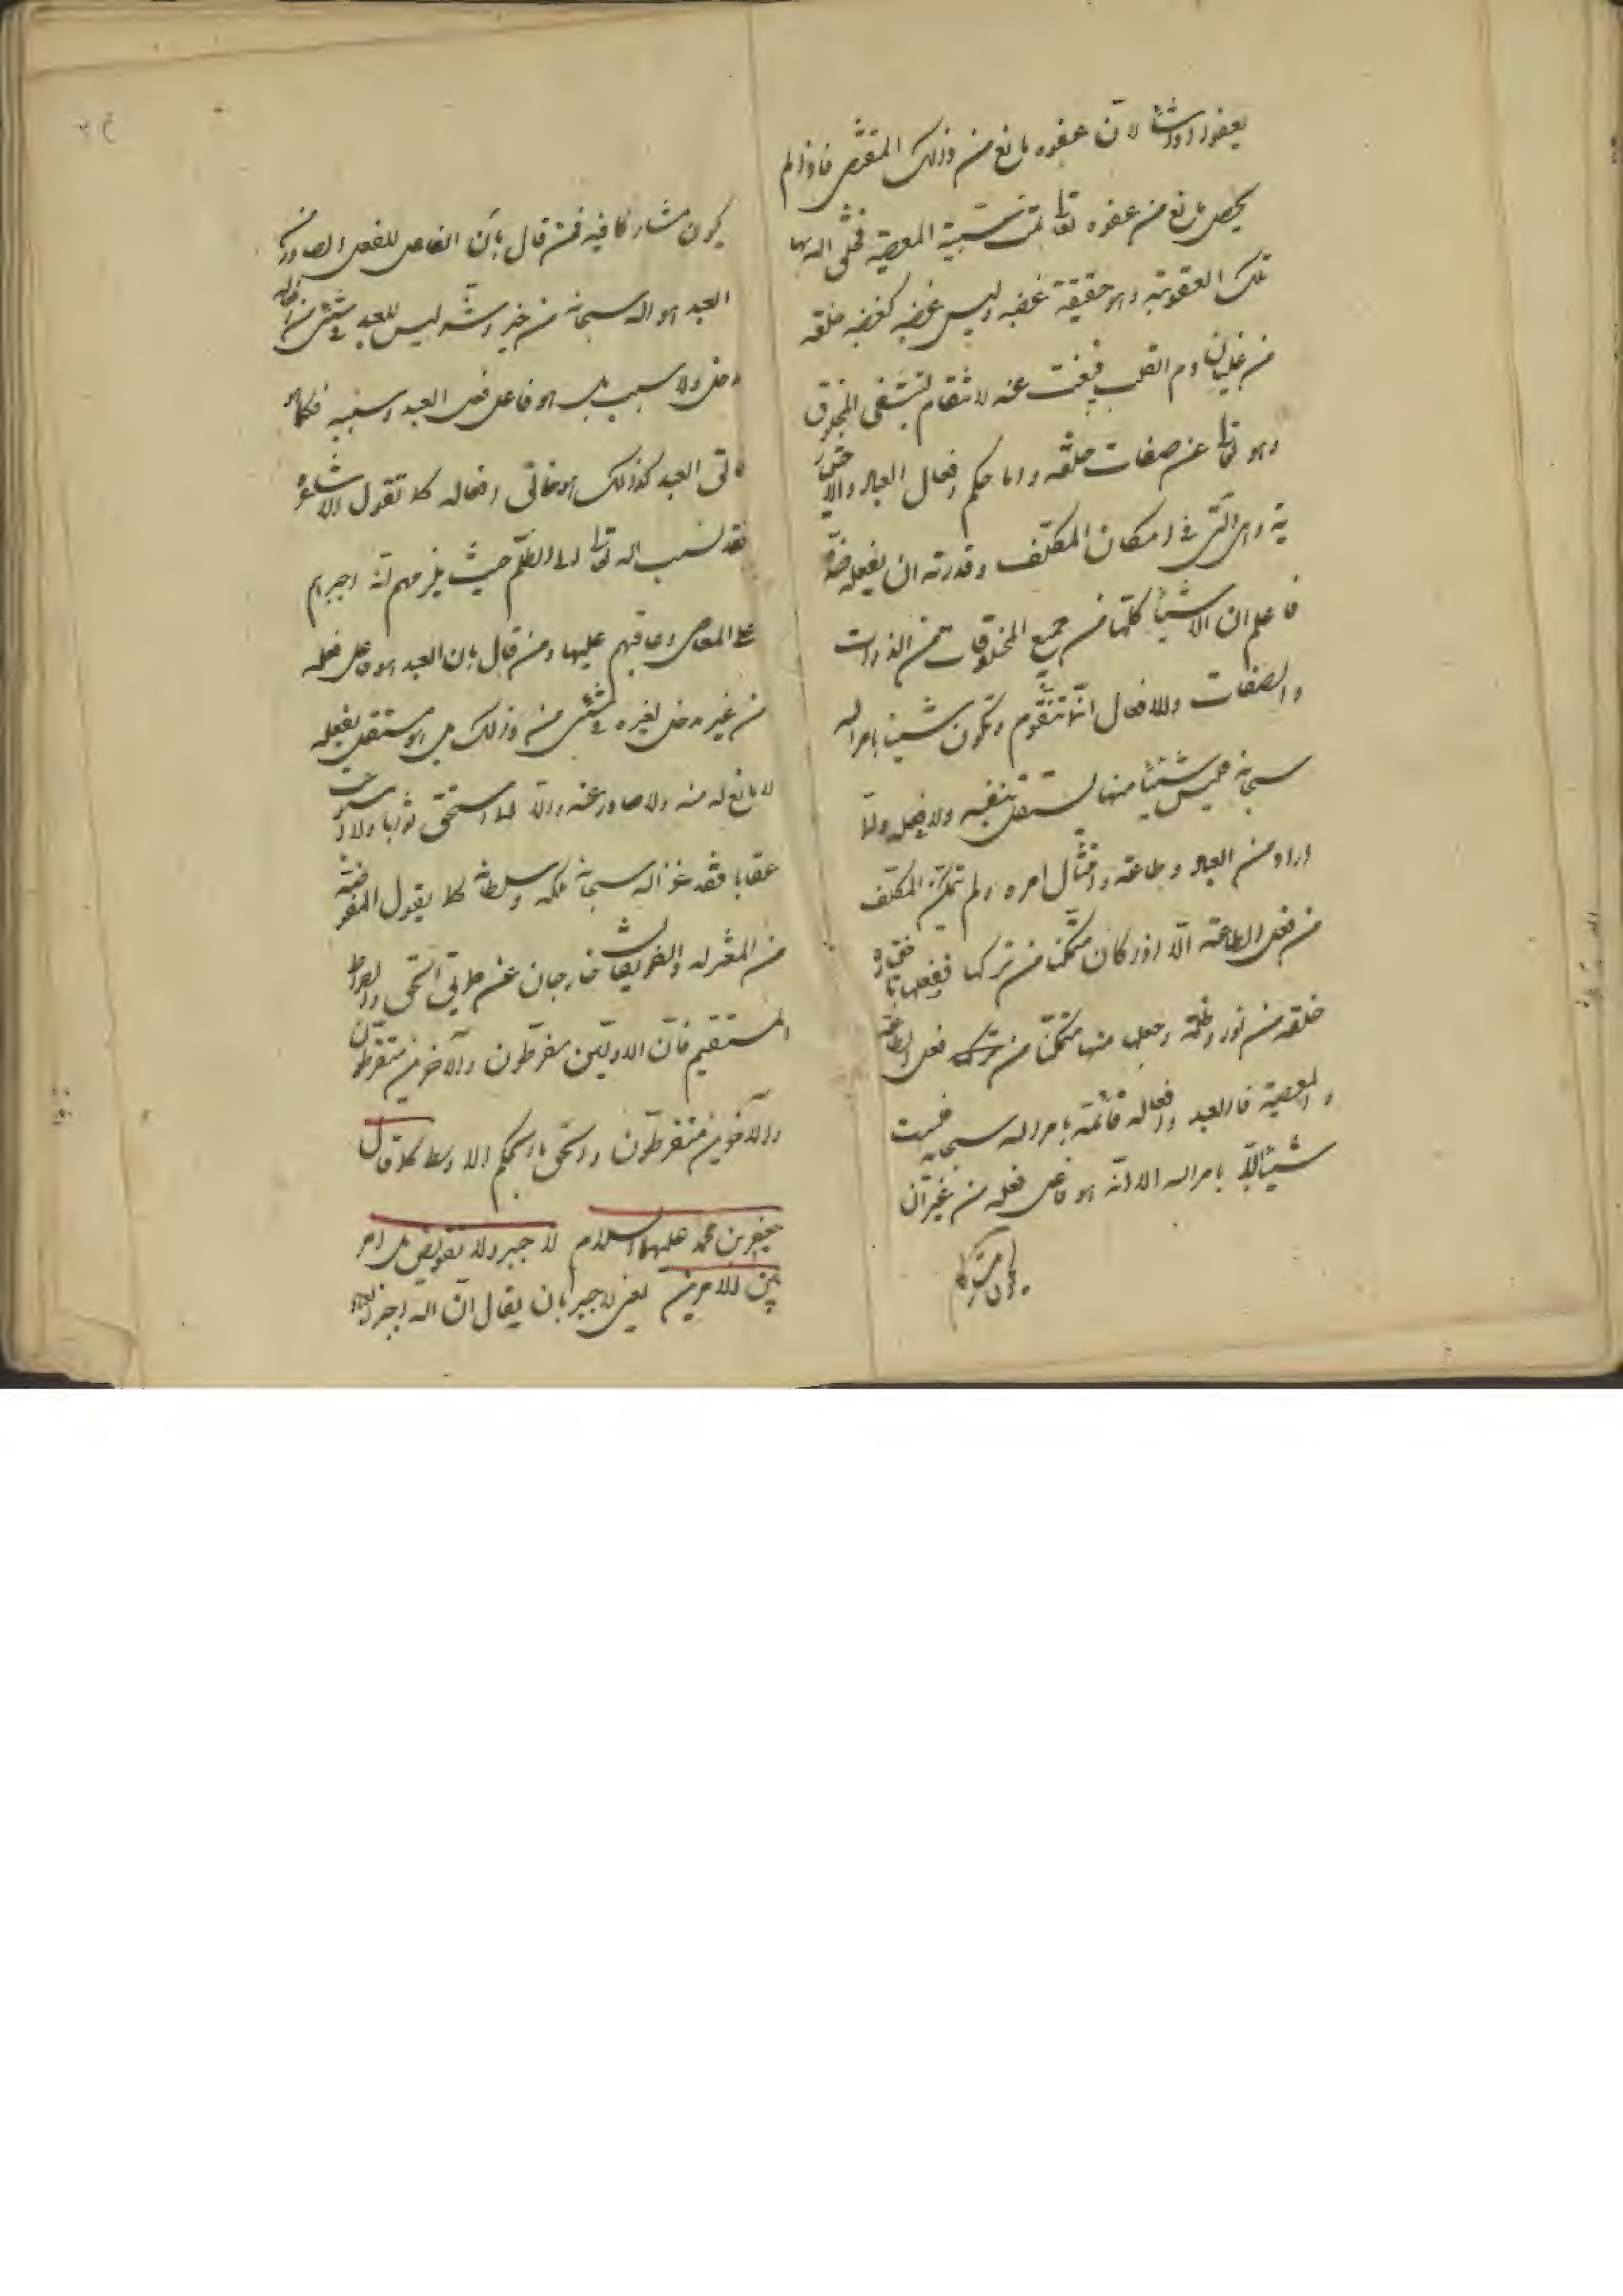 يعفو اذا شاء لان عفوه مانع من ذلك المقتضى فاذا لم
يحصل مانع من عفوه تعالى تمت سببية المعصية فخلق الله بها
تلك العقوبة وهو حقيقة غضبه وليس غضبه كغضب خلقه
من غليان دم القلب فيبعث عنه لانتقام لتشفى المخلوق
وهو تعالى عن صفات خلقه واما حكم افعال العباد والاختيار
ية وهي التي في امكان المكلف وقدرته ان يفعله
فاعلم ان الاشياء كلها من جميع المخلوقات من الذوات
والصفات والافعال انما تتقوم وتكون شيئا بامر الله
سبحانه فليس شيئا منها يستقل بنفسه ولا بفعله ولما
اراد من العباد وطاعته وامتثال امره ولم يتمكن المكلف
من فعل الطاعة الا اذا كان متمكنا من تركها فيفعلها باختياره
خلقه من نور وظلمة وجعل منها متمكنا من فعل الطاعة
والمعصية فالعبد وافعاله قائمة بامر الله سبحانه فليست
شيئا الا بامر الله الا انه هو فاعل فعله من غير ان
يكون مشاركا
يكون مشاركا فيه فمن قال بان الفاعل للفعل الصادر من
العبد هو الله سبحانه من خير وشر ليس للعبد في شئ من افعاله
مدخل ولا سبب بل هو فاعل فعل العبد وسببه فكما هو
خالق العبد كذلك هو خالق افعاله كما تقول الاشاعرة
فقد نسب الله تعالى الى الظلم حيث يلزمهم انه اجبرهم
على المعاصي وعاقبهم عليها ومن قال بان العبد هو فاعل فعله
من غير مدخل لغيره في شئ من ذلك بل هو مستقل بفعله
لا مانع له منه ولا صادر عنه والا لما استحق ثوابا ولا استوجب
عقابا فقد عزل الله سبحانه ملكه وسلطانه كما يقول المفوضة
من المعتزلة والفريقان خارجان عن طريق الحق والصراط
المستقيم فان الاولين مفرطون والآخرين متفرطون
والآخرين متفرطون والحق بالحكم الاوسط كما قال
جعفر بن محمد عليهما السلام لا جبر ولا تفويض بل امر
بين الامرين يعني لا جبر بان يقال ان الله اجبر العباد